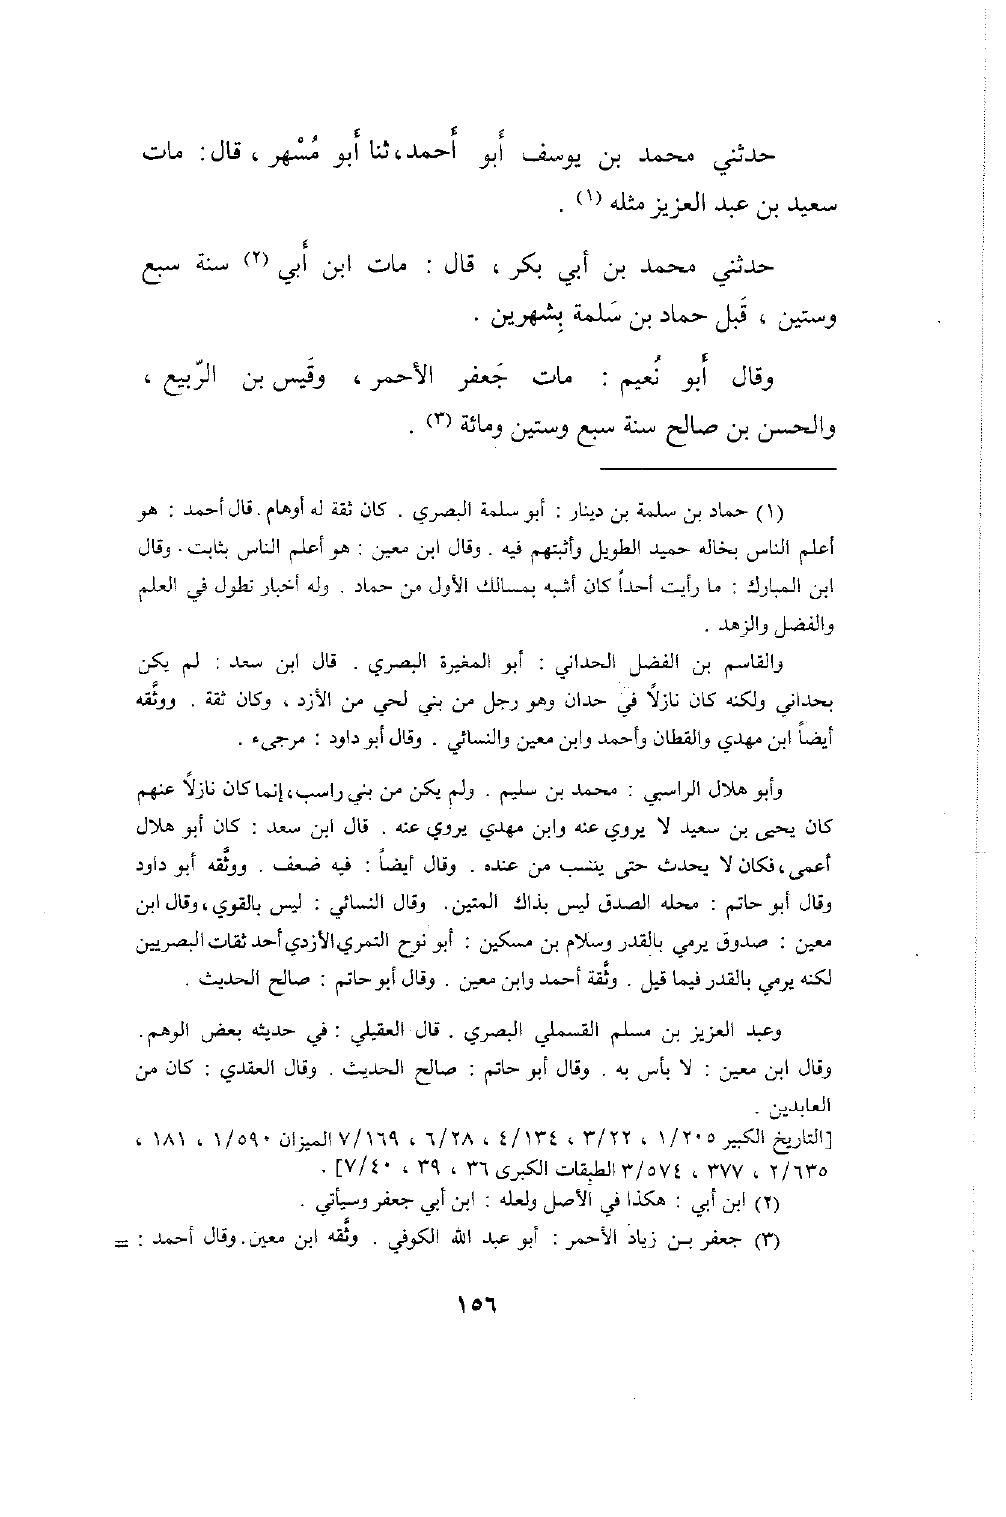 حدثني محمد بن يوسف أَبو أَحمد، ثنا أَبو مُسْهر ، قال: مات
سعيد بن عبد العزيز مثله (١) .
حدثني محمد بن أبي بكر ، قال : مات ابن أَبي (٢) سنة سبع
وستين ، قَبل حماد بن سَلمة بِشهرين .
وقال أَبو نُعيم : مات جَعفر الأحمر ، وقَيس بن الرّبيع ،
والحسن بن صالح سنة سبع وستين ومائة (٣) .
(١) حماد بن سلمة بن دينار : أبو سلمة البصري . كان ثقة له أوهام . قال أحمد : هو
أعلم الناس بخاله حميد الطويل وأثبتهم فيه . وقال ابن معين : هو أعلم الناس بثابت . وقال
ابن المبارك : ما رأيت أحداً كان أشبه بمسالك الأول من حماد . وله أخبار تطول في العلم
والفضل والزهد .
والقاسم بن الفضل الحداني : أبو المغيرة البصري . قال ابن سعد : لم يكن
بحداني ولكنه كان نازلاً في حدان وهو رجل من بني لحي من الأزد ، وكان ثقة . ووثَّقه
أيضاً ابن مهدي والقطان وأحمد وابن معين والنسائي . وقال أبو داود : مرجىء .
وأبو هلال الراسبي : محمد بن سليم . ولم يكن من بني راسب، إنما كان نازلاً عنهم
كان يحيى بن سعيد لا يروي عنه وابن مهدي يروي عنه . قال ابن سعد : كان أبو هلال
أعمى، فكان لا يحدث حتى ينسب من عنده . وقال أيضاً : فيه ضعف . ووثَّقه أبو داود
وقال أبو حاتم : محله الصدق ليس بذاك المتين. وقال النسائي : ليس بالقوي، وقال ابن
معين : صدوق يرمي بالقدر وسلام بن مسكين : أبو نوح النمري الأزدي أحد ثقات البصريين
لكنه يرمي بالقدر فيما قيل . وثَّقة أحمد وابن معين . وقال أبو حاتم : صالح الحديث .
وعبد العزيز بن مسلم القسملي البصري . قال العقيلي : في حديثه بعض الوهم.
وقال ابن معين : لا بأس به . وقال أبو حاتم : صالح الحديث . وقال العقدي : كان من
العابدين .
[التاريخ الكبير ١/٢٠٥ ، ٣/٢٢ ، ٤/١٣٤ ، ٦/٢٨ ، ٧/١٦٩ الميزان ١/٥٩٠ ، ١٨١ ،
٢/٦٣٥ ، ٣٧٧ ، ٣/٥٧٤ الطبقات الكبرى ٣٦ ، ٣٩ ، ٧/٤٠] .
(٢) ابن أبي : هكذا في الأصل ولعله : ابن أبي جعفر وسيأتي .
(٣) جعفر بن زياد الأحمر : أبو عبد الله الكوفي . وثَّقه ابن معين. وقال أحمد : =
١٥٦